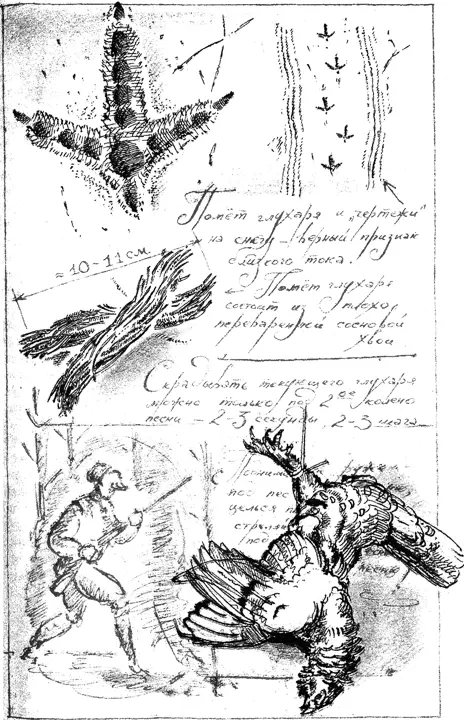 Помёт глухаря и „чертежи“
на снегу – верный признак
близкого тока.
≈ 10-11 см
Помёт глухаря
состоит из плохо
переваренной сосновой
хвои
Скрадывать токующего глухаря
можно только под 2ое колено
песни – 2-3 секунды, 2-3 шага
ружьё
под пес
целься п
стреля
под